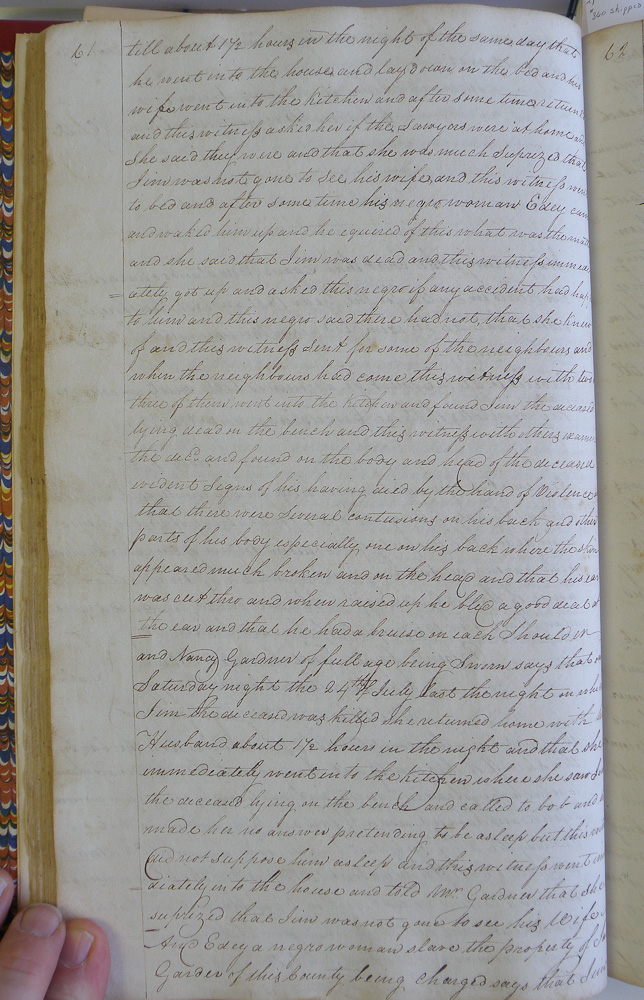 360 skipped
61
62
till about 1 1/2 hours in the night of the same day that
he went into the house and lay down on the bed and his
wife went into the kitchen and after some time return
and this witness asked her if the Sawyers were at home and
she said they were and that she was much Suprized that
Jim was not gone to see his wife and this witness went
to bed and after some time his negro woman Edey cam
and waked him up and he equired of this what was the matt
and she said that Jim was dead and this witness immedi
ately got up and asked this negro if any accident had hap
to him and this negro said there had not, that she knew
of and this witness Sent for some of the neighbours and
when the neighbours had come this witness with two
three of them went into the kitchen and found Jim the deceased
lying dead on the bench and this witness with others exami
the decd. and found on the body and head of the deceased
evident Signs of his having died by the hand of Violence
that there were Several contusions on his back and other
parts of his body especially one on his back where the skin
appeared much broken and on the head and that his ear
was cut thro and when raised up he bled a good deal at
the ear and that he had a bruise on each Shoulder
and Nancy Gardner of full age being Sworn says that on
Saturday night the 24th July last the night on whi
Jim the deceased was killed she returned home with h
Husband about 1 1/2 hours in the night and that she
immediately went into the kitchen where she saw Jim
the deceased lying on the bench and called to bob and
made her no answer pretending to be asleep but this wit
did not suppose him asleep and this witness went im
diately into the house and told Mr. Gardner that she
suprized that Jim was not gone to see his Wife.
And Edey a negro woman slave the property of
Garder of this County being charged says that